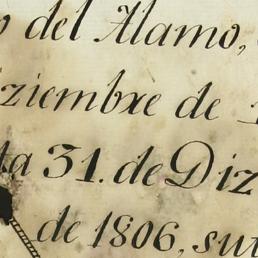 del Alamo,
ziembre de
31. de Diz
de 1806, su